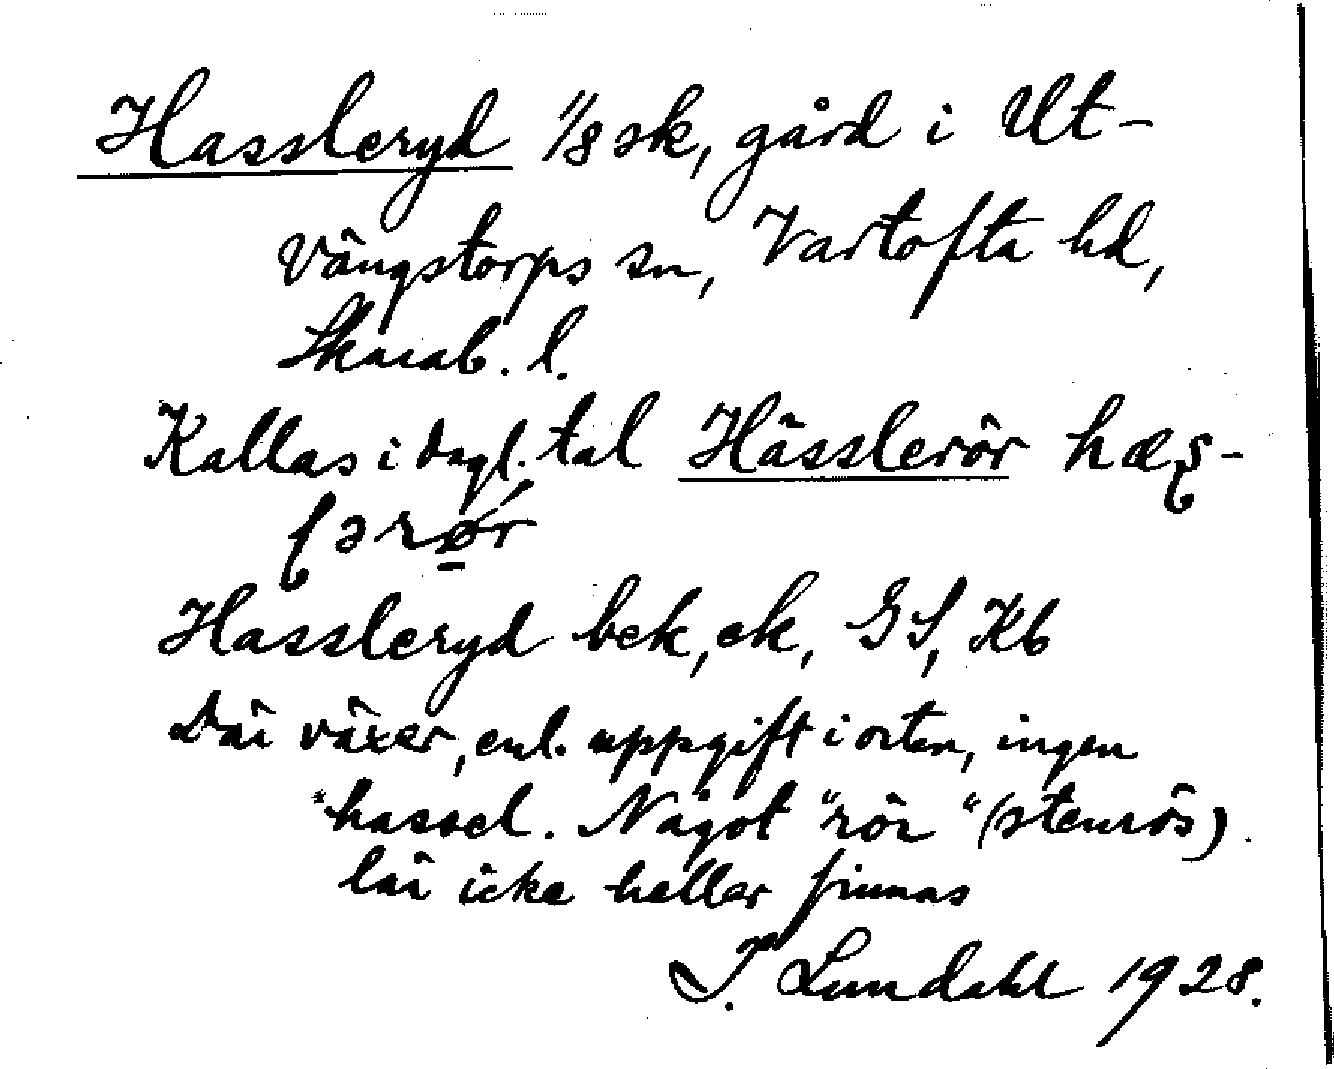 Hassleryd 1/8 sk, gård i Ut-
vängstorps sn, Vartofta hd,
Skarab. l.
Kallas i dagl. tal Hässlerör hæș-
ʃərǿr
Hassleryd bek, ek, GS, Kb
Där växer, enl. uppgift i orten, ingen
hassel. Något "rör" (stenrös)
lär icke heller finnas
I. Lundahl 1928.